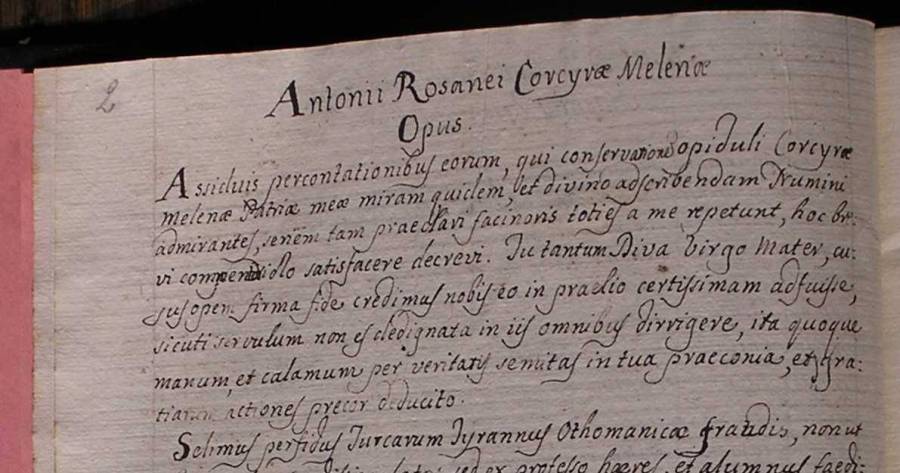 2
Antonii Rosanei Corcyræ Melenæ
Opus.
Assiduis percontationibus eorum, qui conservationem opiduli Corcyræ
melenæ Patriæ meæ miram quidem, et divino adscribendam Numini
admirantes, seriem tam praeclari facinoris toties a me repetunt, hoc bre:
vi compendiolo satisfacere decrevi. Tu tantum Diva Virgo Mater, cu:
jus opem firma fide credimus nobis eo in praelio certissimam adfuisse,
sicuti servulum non es dedignata in iis omnibus dirrigere, ita quoque
manum, et calamum per veritatis semitas in tua praeconia, et gra:
tiarum actiones precor deducito.
Selimus perfidus Turcarum Tyrannus Othomanicæ fraudis, non ut
sed ex professo hæres, et alumnus foedi: